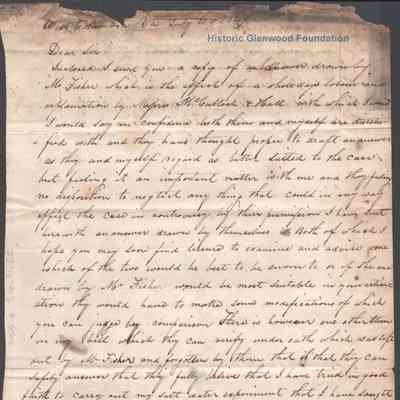 Historic Glenwood Foundation
Dear Sir
Inclosed I send you a copy of an answer drawn by
Mr Fisher which is the effect of a whole days labour and
explanation by Messrs McCulloch & Hall with which I need
I would say in confidence both them and myself are dissatis-
fied with and they have thought proper to draft an answer
as they and myself regard as better suited to the case
but feeling it an important matter with me and they feeling
no disposition to neglect any thing that could in any way
effect the case in controversy by their permission I have sent
herewith an answer drawn by themselves Both of which I
hope you may soon find leisure to examine and advise me
which of the two would be best to be sworn to or if the one
drawn by Mr Fisher would be most suitable in your estim
ation they would have to make some modifications of which
you can judge by comparison There is however one other item
in my bill which they can verify under oath which was left
out by Mr Fisher and forgotten by them that is that they can
safely answer that they fully believe that I have tried in good
faith to carry out my salt water experiment that I have sought